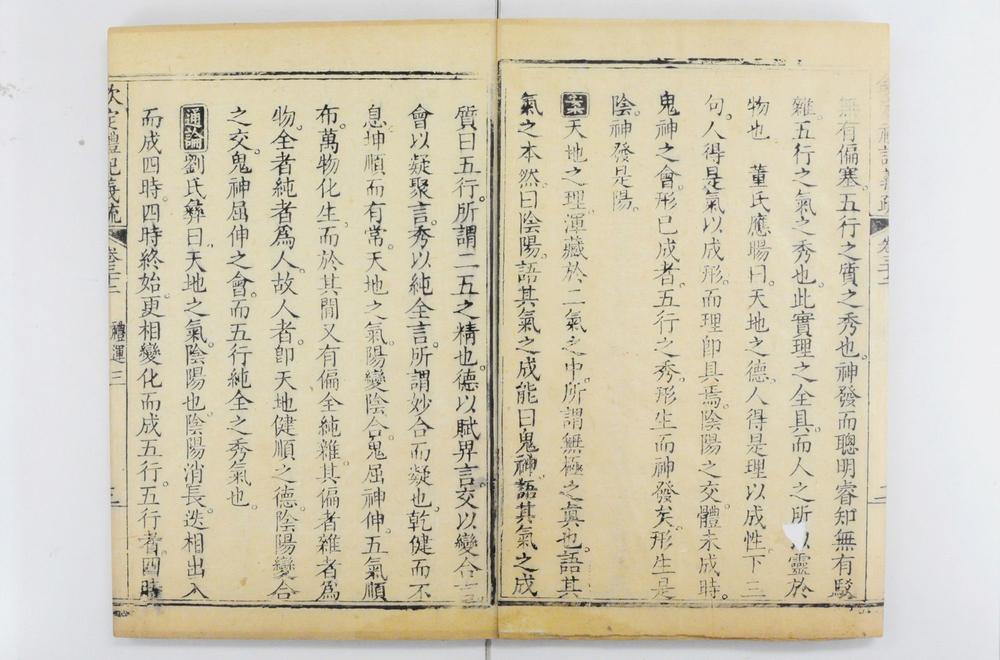 無有偏塞五行之質之秀也神發而聰明睿知無有駁
雜五行之氣之秀也此實理之全具而人之所以靈於
物也　董氏應暘曰天地之德人得是理以成性下三
句人得是氣以成形而理卽具焉陰陽之交體未成時
鬼神之會形已成者五行之秀形生而神發矣形生是
陰神發是陽
案天地之理渾藏於二氣之中所謂無極之真也語其
氣之本然曰陰陽語其氣之成能曰鬼神語其氣之成
質曰五行所謂二五之精也德以賦畀言交以變合言
會以凝聚言秀以純全言所謂妙合而凝也乾健而不
息坤順而有常天地之氣陽變陰合鬼屈神伸五氣順
布萬物化生而於其閒又有偏全純雜其偏者雜者為
物全者純者為人故人者卽天地健順之德陰陽變合
之交鬼神屈伸之會而五行純全之秀氣也
通論劉氏彝曰天地之氣陰陽也陰陽消長迭相出入
而成四時四時終始更相變化而成五行五行者四時
欽定禮記義疏　卷三十二　禮運三